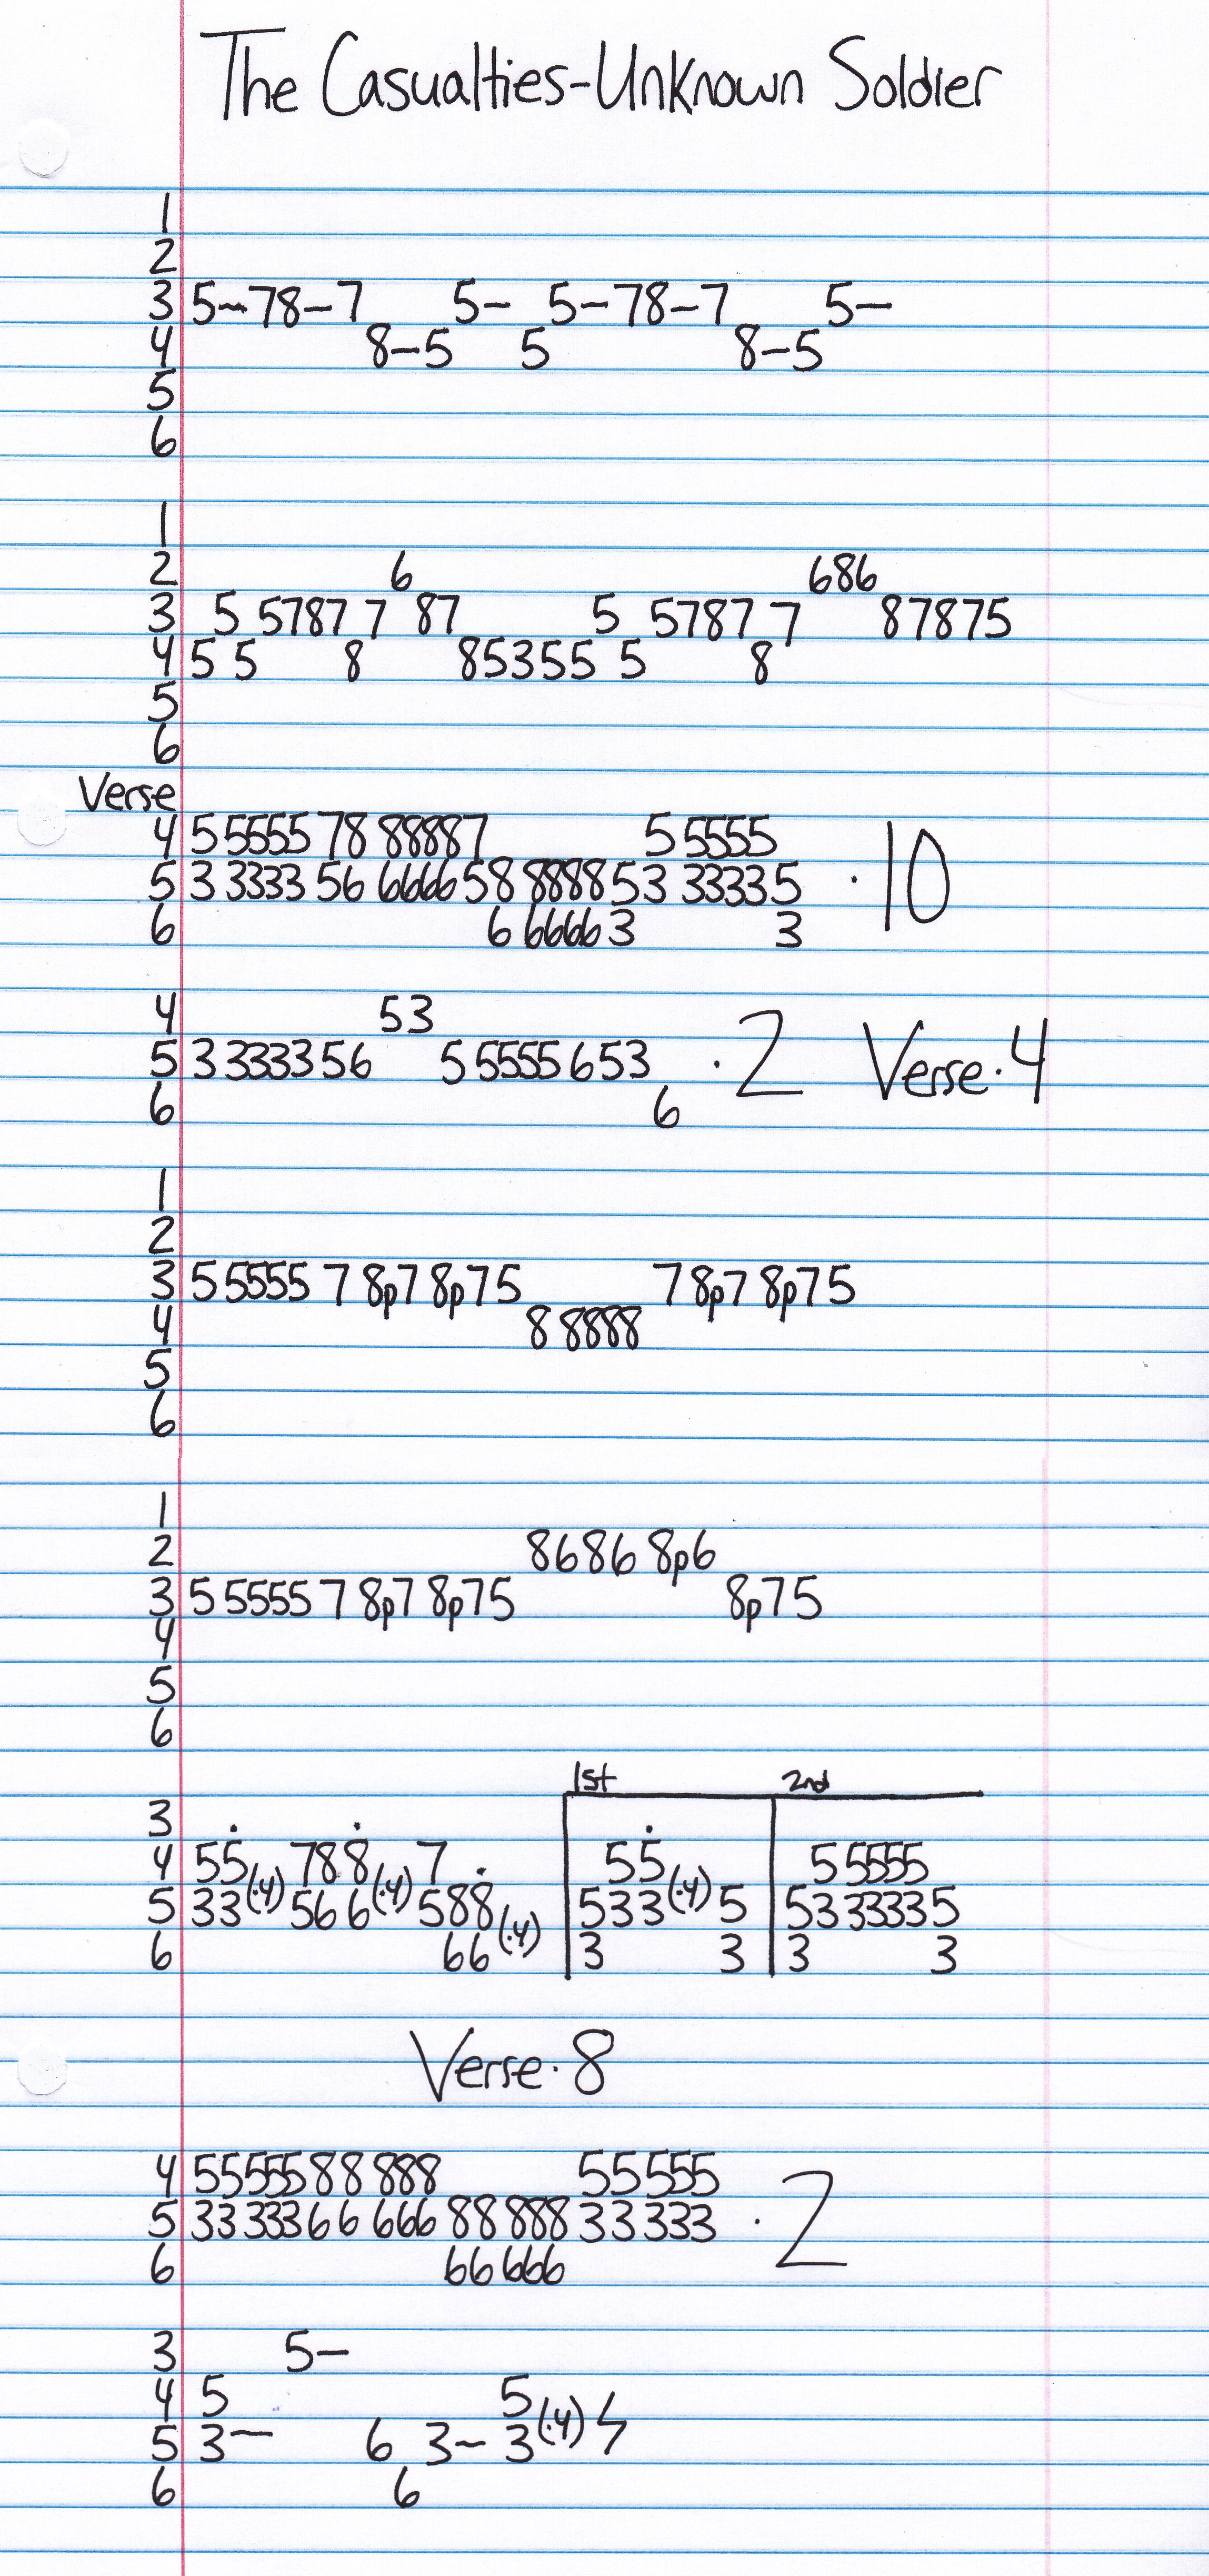 The Casualties-Unknown Soldier
1
2
3 5-78-7 5- 5-78-7 5-
4 8-5 5 8-5
5
6
1
2 6 686
3 5 5787 7 87 5 5787 7 87875
4 5 5 8 85355 5 8
5
6
Verse
4 5 5555 78 88887 5 5555
5 3 3333 56 6666 58 8888 53 33335 · 10
6 6 6666 3 3
4 53
5 3 3333 56 5 5555 653 · 2 Verse·4
6 6
1
2
3 5 5555 7 8p7 8p75 7 8p7 8p75
4 8 8888
5
6
1
2 8686 8p6
3 5 5555 7 8p7 8p75 8p75
4
5
6
1st 2nd
3
4 55 788 7 55 5 5555
5 33(·4) 56 6(·4) 588 533(·4) 5 53 33335
6 66(·4) 3 3 3 3
Verse·8
4 55555 88 888 55 555
5 33 333 66 666 88 888 33 333 · 2
6 66 666
3 5-
4 5 5
5 3- 6 3- 3(·4)
6 6